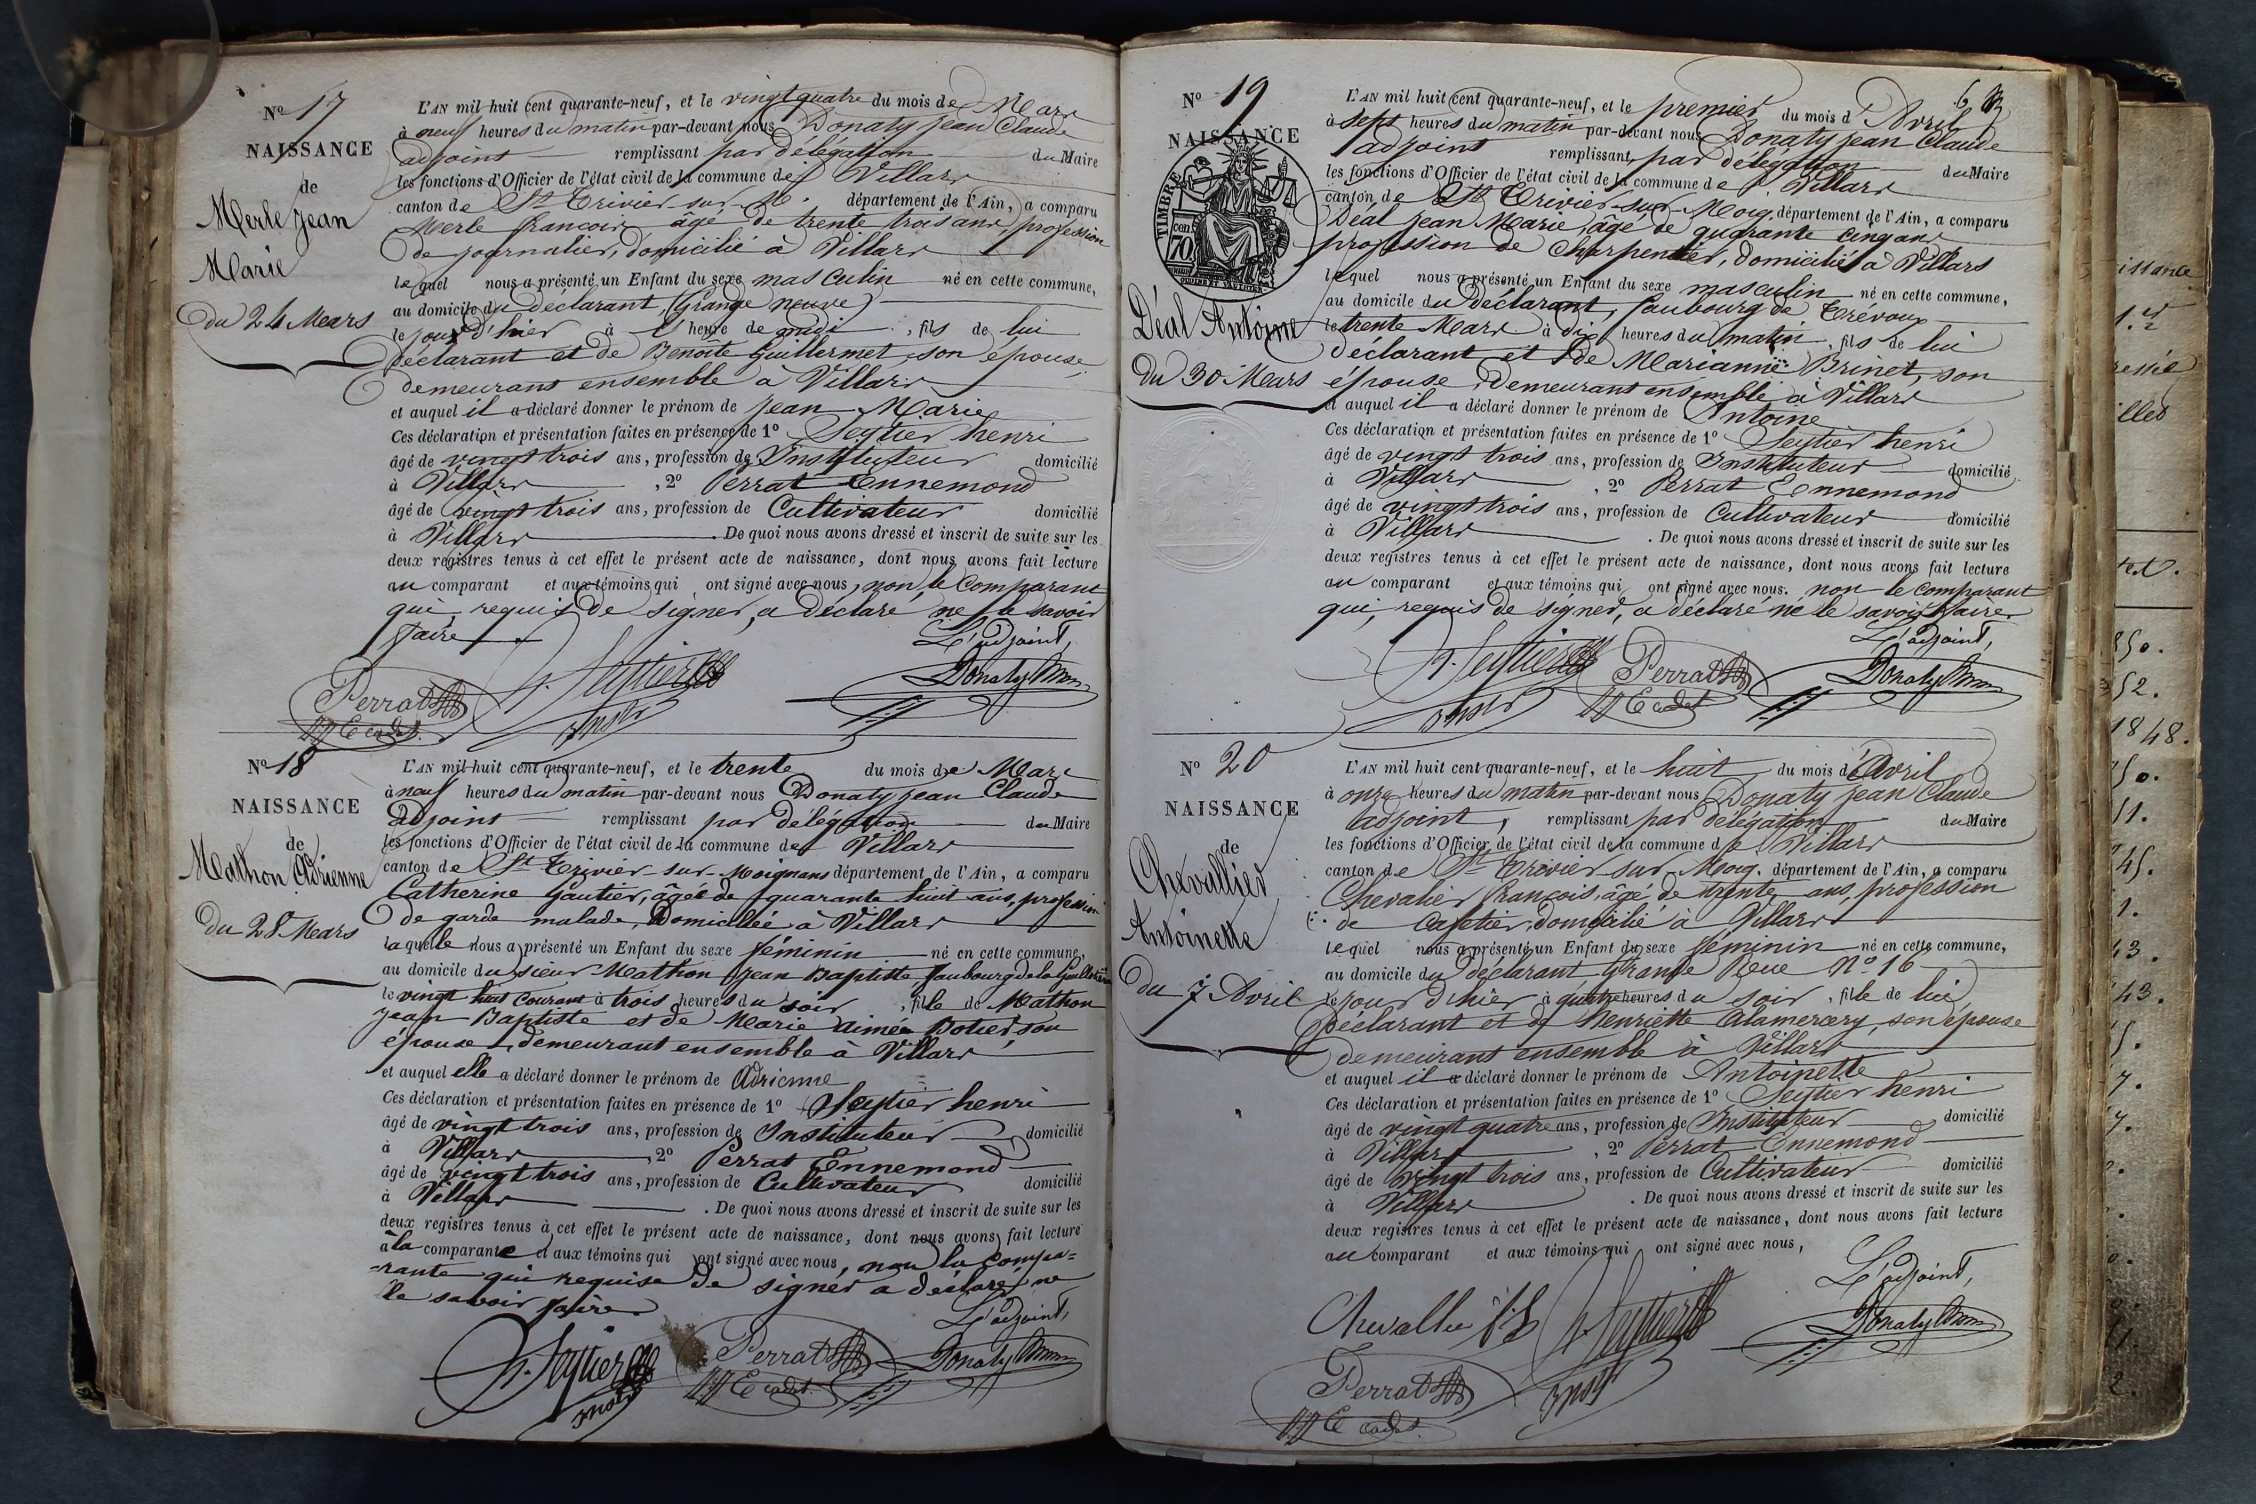 Nº 17
NAISSANCE
de
Merle Jean
Marie
du 24 Mars
L'AN mil huit cent quarante-neuf, et le vingt quatre du mois de Mars
à neuf heures du matin par-devant nous Donaty Jean Claude
adjoint remplissant par délégation du Maire
les fonctions d'Officier de l'état civil de la commune de Villars
canton de St Trivier sur M. département de l'Ain, a comparu
Merle francois âgé de trente trois ans, profession
de journalier, domicilié à Villars
lequel nous a présenté un Enfant du sexe masculin né en cette commune,
au domicile du déclarant (Grange neuve)
le jour d'hier à l'heure de midi, fils de lui
déclarant et de Benoite Guillermet, son épouse
demeurans ensemble à Villars
et auquel il a déclaré donner le prénom de Jean Marie
Ces déclaration et présentation faites en présence de 1º Seytier henri
âgé de vingt trois ans, profession de Instituteur domicilié
à Villars, 2º Perrat Ennemond
âgé de vingt trois ans, profession de Cultivateur domicilié
à Villars. De quoi nous avons dressé et inscrit de suite sur les
deux registres tenus à cet effet le présent acte de naissance, dont nous avons fait lecture
au comparant et aux témoins qui ont signé avec nous, non le comparant
qui, requis de signer, a déclaré ne le savoir
faire
L'adjoint,
Perrat cadet H. Seytier Inst. Donaty
Nº 18
NAISSANCE
de
Mathon Adrienne
du 28 Mars
L'AN mil huit cent quarante-neuf, et le trente du mois de Mars
à neuf heures du matin par-devant nous Donaty Jean Claude
adjoint remplissant par délégation du Maire
les fonctions d'Officier de l'état civil de la commune de Villars
canton de St Trivier-sur-Moignans département de l'Ain, a comparu
Catherine Gautier, âgée de quarante huit ans, profession
de garde malade, domiciliée à Villars
laquelle nous a présenté un Enfant du sexe féminin né en cette commune,
au domicile du sieur Mathon Jean Baptiste faubourg de la
le vingt huit courant à trois heures du soir, fille de Mathon
Jean Baptiste et de Marie Aimée Botier, son
épouse, demeurant ensemble à Villars
et auquel elle a déclaré donner le prénom de Adrienne
Ces déclaration et présentation faites en présence de 1º Seytier henri
âgé de vingt trois ans, profession de Instituteur domicilié
à Villars, 2º Perrat Ennemond
âgé de vingt trois ans, profession de Cultivateur domicilié
à Villars. De quoi nous avons dressé et inscrit de suite sur les
deux registres tenus à cet effet le présent acte de naissance, dont nous avons fait lecture
à la comparante et aux témoins qui ont signé avec nous, non la compa-
-rante qui requise de signer a déclaré ne
le savoir faire
L'adjoint,
H. Seytier Inst. Perrat cadet. Donaty
Nº 19
NAISSANCE
TIMBRE
70 cen
Déal Antoine
du 30 Mars
L'AN mil huit cent quarante-neuf, et le premier du mois d'Avril
à sept heures du matin par-devant nous Donaty Jean Claude
adjoint remplissant par délégation du Maire
les fonctions d'Officier de l'état civil de la commune de Villars
canton de St Trivier-sur-Moig. département de l'Ain, a comparu
Déal Jean Marie, âgé de quarante cinq ans
profession de Charpentier, domicilié à Villars
lequel nous a présenté un Enfant du sexe masculin né en cette commune,
au domicile du déclarant, faubourg de Trévoux
le trente Mars à dix heures du matin, fils de lui
déclarant et de Marianne Brinet, son
épouse, demeurans ensemble à Villars
et auquel il a déclaré donner le prénom de Antoine
Ces déclaration et présentation faites en présence de 1º Seytier henri
âgé de vingt trois ans, profession de Instituteur domicilié
à Villars, 2º Perrat Ennemond
âgé de vingt trois ans, profession de Cultivateur domicilié
à Villars. De quoi nous avons dressé et inscrit de suite sur les
deux registres tenus à cet effet le présent acte de naissance, dont nous avons fait lecture
au comparant et aux témoins qui ont signé avec nous. non le comparant
qui, requis de signer, a déclaré ne le savoir faire
L'adjoint,
H. Seytier Inst. Perrat cadet Donaty
Nº 20
NAISSANCE
de
Chevallier
Antoinette
du 7 Avril
L'AN mil huit cent quarante-neuf, et le huit du mois d'Avril
à onze heures du matin par-devant nous Donaty Jean Claude
adjoint, remplissant par délégation du Maire
les fonctions d'Officier de l'état civil de la commune de Villars
canton de St Trivier sur Moig. département de l'Ain, a comparu
Chevalier François, âgé de trente ans, profession
de Cafetier, domicilié à Villars
lequel nous a présenté un Enfant du sexe féminin né en cette commune,
au domicile du déclarant Grande Rue Nº 16
le jour d'hier à quatre heures du soir, fille de lui
déclarant et de henriette Alamercery, son épouse
demeurans ensemble à Villars
et auquel il a déclaré donner le prénom de Antoinette
Ces déclaration et présentation faites en présence de 1º Seytier henri
âgé de vingt quatre ans, profession de Instituteur domicilié
à Villars, 2º Perrat Ennemond
âgé de vingt trois ans, profession de Cultivateur domicilié
à Villars. De quoi nous avons dressé et inscrit de suite sur les
deux registres tenus à cet effet le présent acte de naissance, dont nous avons fait lecture
au comparant et aux témoins qui ont signé avec nous,
L'adjoint,
Chevallier H. Seytier Inst. Donaty
Perrat cadet.